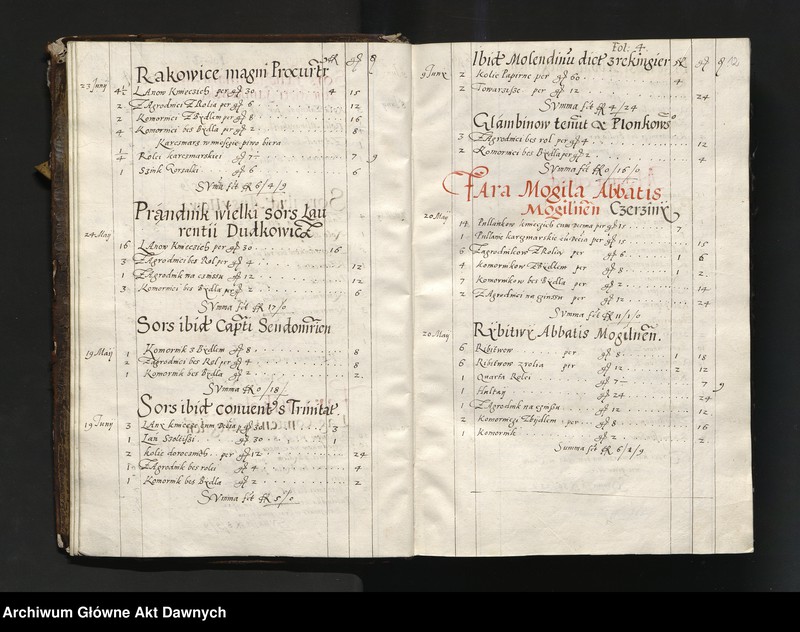 Rakowice magni Procuratr fR gſ ꝸ
23 Junij 4½ LAnow Kmieczich per gſ 30 4 15
2 ZAgrodnici Z Rolia per gſ 6 12
2 Komornici Z Bydlem per gſ 8 16
4 Komornici bes Bydla per gſ 2 8
Karczmars w miesczie piwo biera
¼ Rolei karczmarskiei gſ 7 7 9
1 Szink Gorzalki gſ 6 6
SVma fct fR 6/4/9
Prandnik wielki sors Lau
rentii Dudkowicz
24 May 16 LAnow Kmieczich per gſ 30 16
3 ZAgrodnici bes Rol per gſ 4 12
1 ZAgrodnik na czinssu gſ 12 12
3 Komornici bes Bydla per gſ 2 6
SVmma fct fR 17/0
Sors ibid Capti Sendomirien
19 Maij 1 Komornik z Bydlem gſ 8 8
2 Zagrodnici bes Rol per gſ 4 8
1 Komornik bes Bydla gſ 2 2
SVmma fR 0/18
Sors ibid conuent S Trinitat
19 Junij 3 LAny kmiecze cum Decia p gſ 30 3
1 Lan Szoltissi gſ 30 1
2 Rolie doroczneh per gſ 12 24
1 ZAgrodnik bes rolei gſ 4 4
1 Komornik bes Bydla gſ 2 2
SVmma fct fR 5/0
Fol: 4. 12
Ibid Molendinu dict zrekingier fR gſ ꝸ
9 Junij 2 Kolie Papirne per gſ 60 4
2 Towarzisse per gſ 12 24
SVmma fct fR 4/24
Glambinow tenut G Plonkows
3 ZAgrodnici bes rol per gſ 4 12
2 Komornici bes Bydla per gſ 2 4
SVmma fct fR 0/16/0
FAra Mogila Abbatis
Mogilnen Czerziny
20 May 14 Pullankow kmieczich cum Decima per gſ 15 7
1 Pullanie karczmarskie cu Decia per gſ 15 15
6 Zagrodnikow Z Roliu per gſ 6 1 6
4 Komornikow Z Bydlem per gſ 8 1 2
7 Komornikow bes Bydla per gſ 2 14
2 ZAgrodnici na czinssu per gſ 12 24
SVmma fct fR 11/1/0
Rybitwy Abbatis Mogilnen.
20 May 6 Ribitwow per gſ 8 1 18
6 Ribitwow z rolia per gſ 12 2 12
1 Quarta Rolei gſ 7 7 9
1 Hultay gſ 24 24
1 ZAgrodnik na czinssu gſ 12 12
2 Komornici Z Bydlem per gſ 8 16
1 Komornik gſ 2 2
Summa fct fR 6/2/9
Archiwum Główne Akt Dawnych